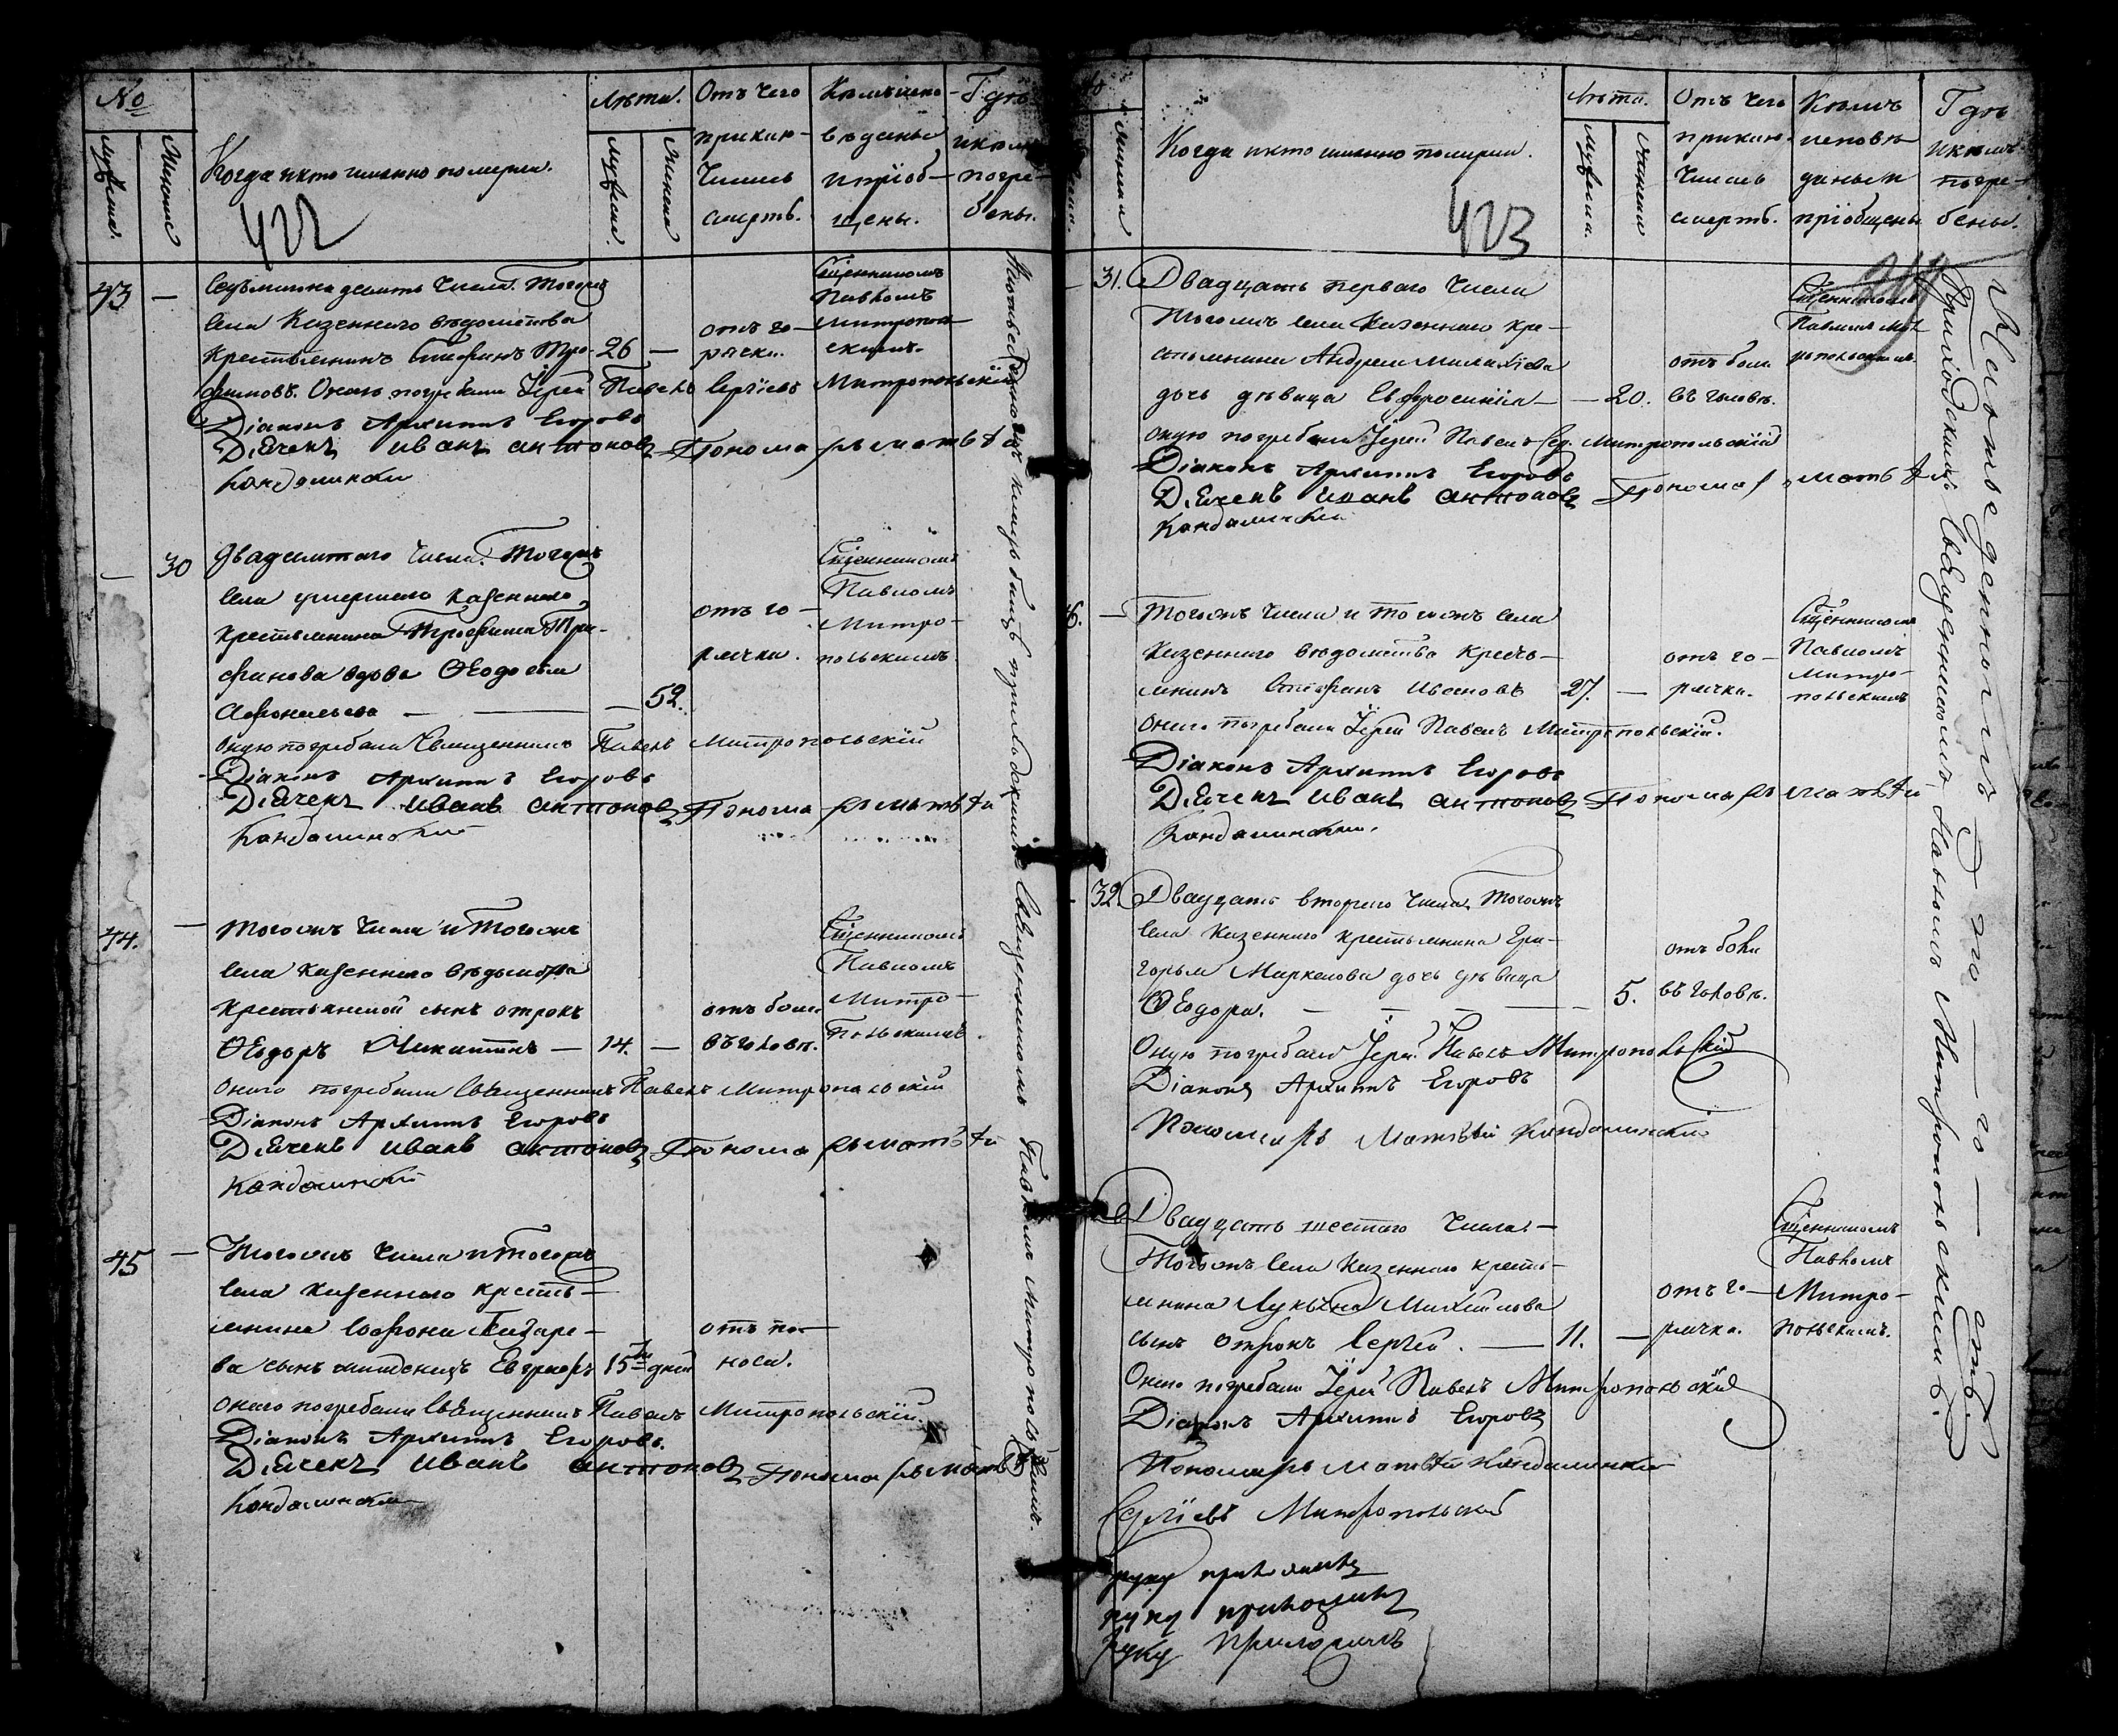 №
Лѣта.
Отъ чего
Кѣмъ испо-
Гдѣ
Мужеска.
Женска
Когда и кто именно померли.
Мужеска.
Женска
приклю-
вѣданы
и кѣмъ
чилась
и пріоб-
погре-
смерть.
щены.
бены.
422
43 —
Седьмагонадесять числа. Тогожъ
села Казеннаго вѣдомства
крестьянинъ Стефанъ Тро- 26 —
фимовъ. Онаго погребали Іерей Павелъ Сергіевъ Митропольскій
Діаконъ Архиппъ Егоровъ
Дьячекъ Иванъ Антоновъ Пономарь Матвѣй
Кандалинскій
отъ го-
рячки.
Сщенникомъ
Павломъ
Митрополь-
скимъ.
— 30
двадесятаго числа. Тогожъ
села умершаго казеннаго
крестьянина Трофима Три-
фанова вдова Ѳеодосья
Афонасьева — — 52.
оную погребали Священникъ Павелъ Митропольскій
Діаконъ Архиппъ Егоровъ
Дьячекъ Иванъ Антоновъ Пономарь Матвѣй
Кандалинскій
отъ го-
рячки.
Сщенникомъ
Павломъ
Митро-
польскимъ
44. —
Тогожъ числа и Тогожъ
села казеннаго вѣдомства
крестьянской сынъ отрокъ
Ѳеодоръ Никитинъ — 14. —
онаго погребали Священникъ Павелъ Митропольскій
Діаконъ Архиппъ Егоровъ
Дьячекъ Иванъ Антоновъ Пономарь Матвѣй
Кандалинскій
отъ боли
въ головѣ.
Сщенникомъ
Павломъ
Митро-
польскимъ.
45 —
Тогожъ числа и Тогожъ
села казеннаго кресть-
янина Софона
ва сынъ младенецъ Евграфъ 15ти дней
онаго погребали Священникъ Павелъ Митропольскій.
Діаконъ Архиппъ Егоровъ.
Дьячекъ Иванъ Антоновъ Пономарь Матвѣй
Кандалинскій
отъ по-
носа.
приходскимъ Священникомъ Павломъ Митропольскимъ.
Лѣта.
Отъ чего
Кѣмъ
Гдѣ
Женска
Когда и кто именно померли.
Мужеска.
Женска
приклю-
исповѣ-
и кѣмъ
чилась
даны и
погре-
смерть.
пріобщены
бены.
423
— 31.
Двадцать перваго числа
Тогожъ села Казеннаго кре-
стьянина Андрея Михайлова
дочь дѣвица Евфросинія — — 20.
оную погребали Іерей Павелъ Сер. Митропольскій
Діаконъ Архиппъ Егоровъ
Дьячекъ Иванъ Антоновъ Пономарь Матвѣй
Кандалинскій
отъ боли
въ головѣ.
Сщенникомъ
Павломъ Мит
ропольскимъ.
6. —
Тогожъ числа и тогожъ села
Казеннаго вѣдомства кресть-
янинъ Стефанъ Ивановъ 27. —
Онаго погребали Іерей Павелъ Митропольскій.
Діаконъ Архиппъ Егоровъ
Дьячекъ Иванъ Антоновъ Пономарь Матвѣй
Кандалинскій.
отъ го-
рячки.
Сщенникомъ
Павломъ
Митро-
польскимъ
— 32.
Двадцать втораго числа, Тогожъ
села Казеннаго крестьянина Гри-
горья Маркелова дочь дѣвица
Ѳеодора. — — — — 5.
Оную погребали Іерей Павелъ Митропольскій
Діаконъ Архиппъ Егоровъ
Пономарь Матвѣй Кандалинскій
отъ боли
въ головѣ.
Двадцать шестаго числа. —
Тогожъ села Казеннаго кресть-
янина Лукьяна Михайлова
сынъ отрокъ Сергѣй. — 11. —
Онаго погребали Іерей Павелъ Митропольскій
Діаконъ Архиппъ Егоровъ
Пономарь Матвѣй Кандалинскій
отъ го-
рячки.
Сщенникомъ
Павломъ
Митро-
польскимъ.
Сергіевъ Митропольскій
руку приложилъ
руку приложилъ
руку приложилъ
На отведенномъ
Приходскимъ Священникомъ Павломъ Митропольскимъ.